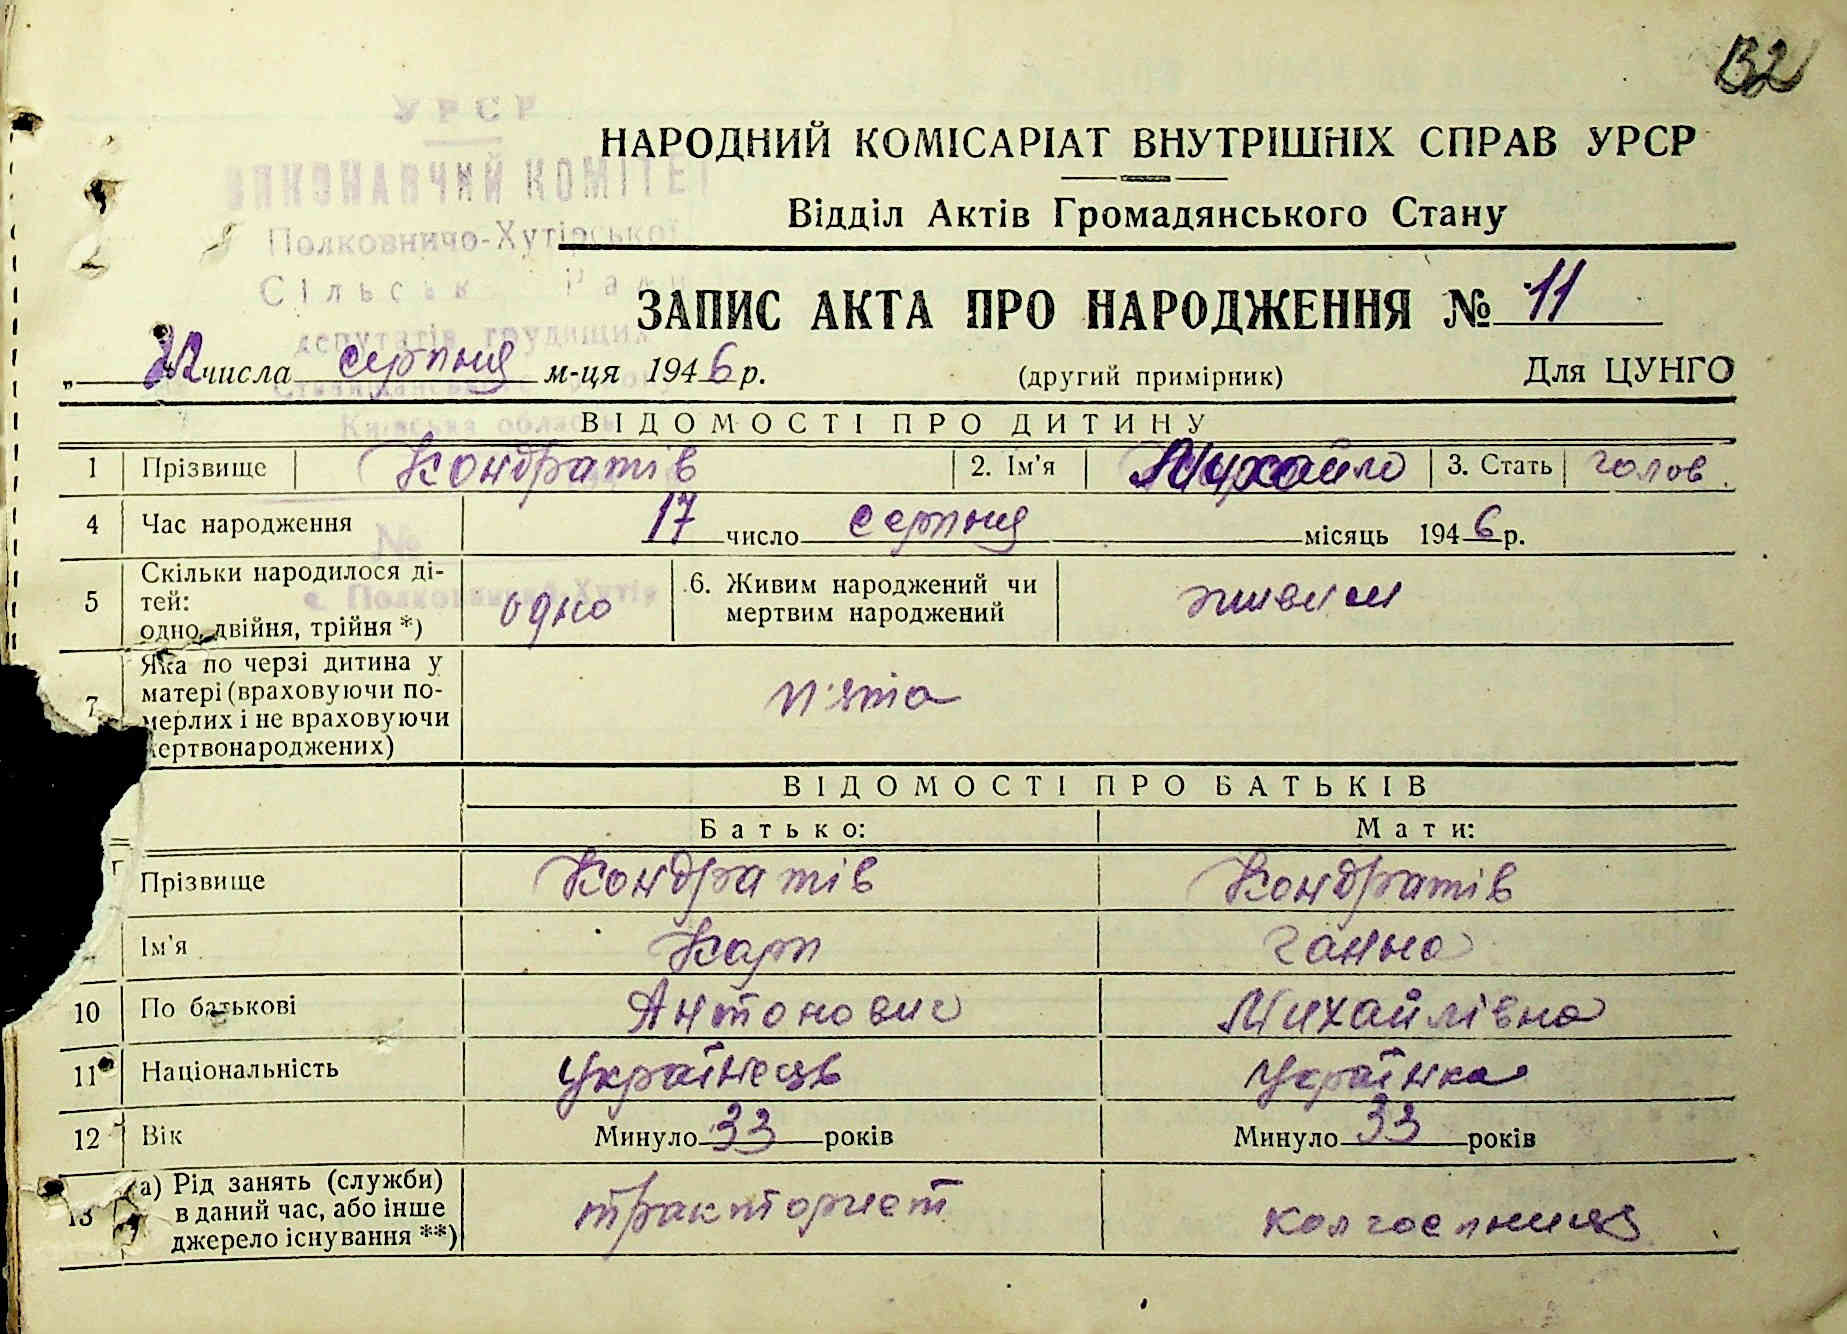 132
УРСР
ВИКОНАВЧИЙ КОМІТЕТ
Полковничо-Хутірської
Сільськ Ради
депутатів трудящих
Київська область
№
с. Полковничий Хутір
НАРОДНИЙ КОМІСАРІАТ ВНУТРІШНІХ СПРАВ УРСР
Відділ Актів Громадянського Стану
ЗАПИС АКТА ПРО НАРОДЖЕННЯ № 11
„ числа серпня м-ця 1946 р. (другий примірник) Для ЦУНГО
ВІДОМОСТІ ПРО ДИТИНУ
1 Прізвище Кондратів 2. Ім'я Михайло 3. Стать голов.
4 Час народження 17 число серпня місяць 1946 р.
5 Скільки народилося ді-
тей:
одно, двійня, трійня *) одно 6. Живим народжений чи
мертвим народжений живим
7 Яка по черзі дитина у
матері (враховуючи по-
мерлих і не враховуючи
мертвонароджених) п'ята
ВІДОМОСТІ ПРО БАТЬКІВ
Батько: Мати:
Прізвище Кондратів Кондратів
Ім'я Карп Ганна
10 По батькові Антонович Михайлівна
11 Національність українець українка
12 Вік Минуло 33 років Минуло 33 років
13 а) Рід занять (служби)
в даний час, або інше
джерело існування **) тракторист колгоспниця